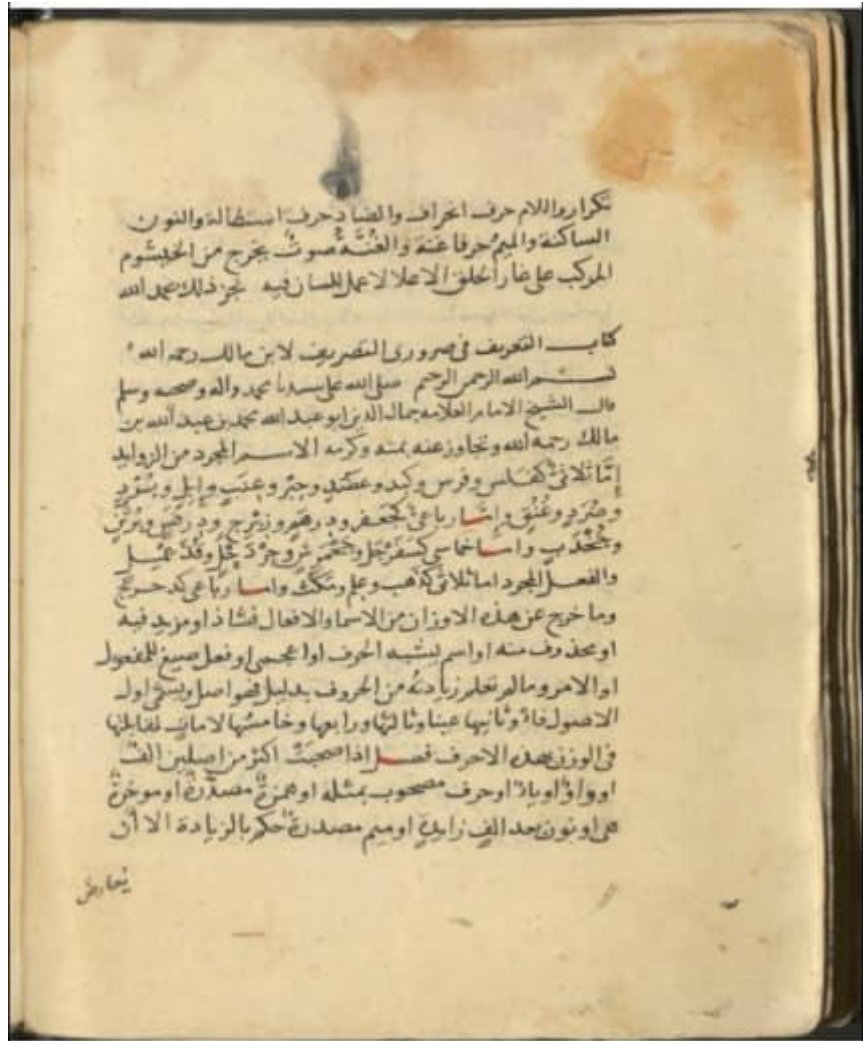 تكرار واللام حرف انحراف والضاد حرف استطالة والنون
الساكنة والميم حرفا غنة والغُنَّةُ صوتٌ يخرج من الخيشوم
المركب على غار الحلق الاعلا لا عمل للسان فيه نجز ذلك بحمد الله
كتاب التعريف في ضروري التصريف لابن مالك رحمه الله
بسم الله الرحمن الرحيم صلى الله على سيدنا محمد واله وصحبه وسلم
قال الشيخ الامام العلامه جمال الدين ابو عبد الله محمد بن عبد الله بن
مالك رحمه الله وتجاوز عنه بمنه وكرمه الاسم المجرد من الزوايد
إمّا ثلاثي كفَلس وفرس وكبد وعضد وحبر وعنب وإبل وبُرْد
وصُرَد وعُنُق وإما رباعي كجعفر ودرهم وزبرج وبُرثُن
وجُخْدَب واما خماسي كسفرجَل وجَحْمَرِش وجِرْدَحْل وقُذَعْمِيل
والفعل المجرد اما ثلاثي كذهب وعلم ومكث واما رباعي كدحرج
وما خرج عن هذه الاوزان من الاسما والافعال فشاذ او مزيد فيه
او محذوف منه او اسم يشبه الحرف او اعجمي او فعل صيغ للمفعول
او الامر وما لم تعلم زيادتُه من الحروف بدليل فهو اصل ويسمى اول
الاصول فاءً وثانيها عينا وثالثها ورابعها وخامسها لامات لمقابلتها
في الوزن بهذه الاحرف فصل اذا صحبَتْ اكثر من اصلين الفٌ
او واوٌ او ياءٌ او حرف مصحوب بمثله او همزةٌ مصدَّرةٌ او موخرةٌ
هي او نون بعد الفٍ زايدةٍ او ميم مصدرةٌ حكم بالزيادة الا ان
يُعارض